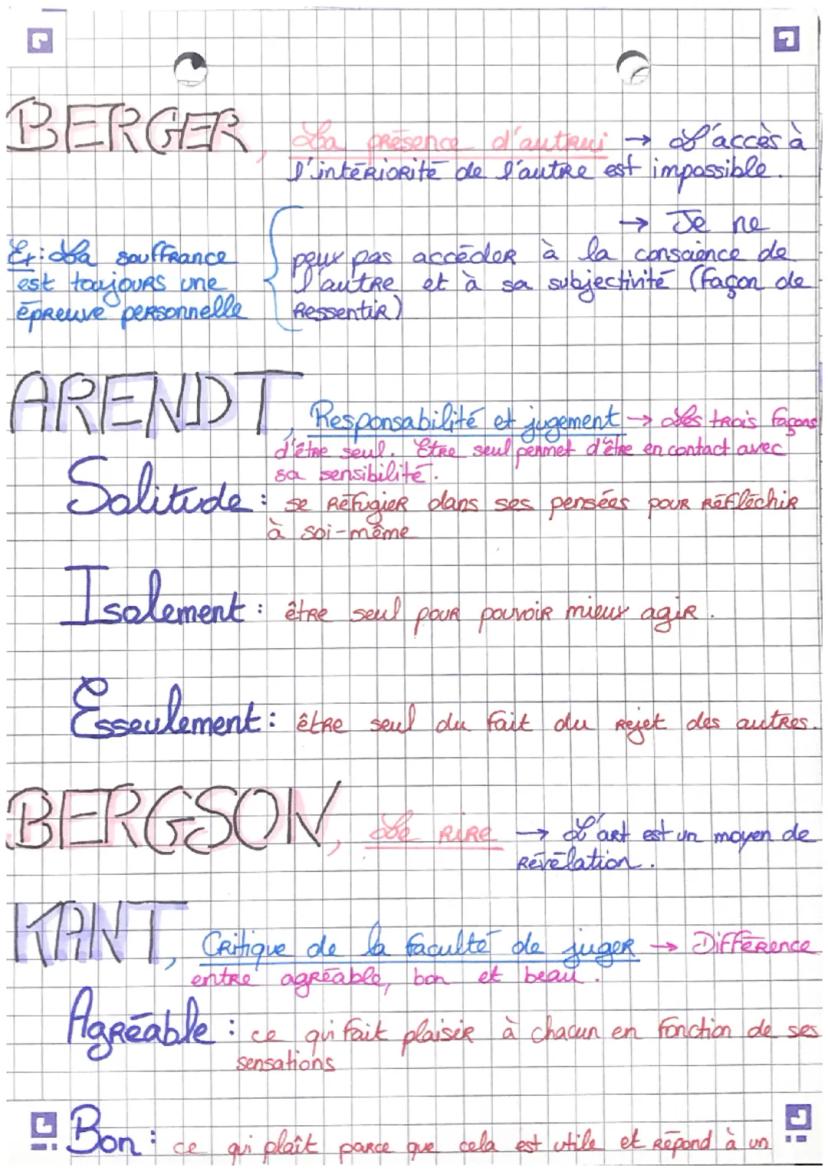 BERGER, La présence d'autrui → L'accès à
l'intériorité de l'autre est impossible.
→ Je ne
peux pas accéder à la conscience de
l'autre et à sa subjectivité (façon de
ressentir)
Ex: La souffrance
est toujours une
épreuve personnelle
ARENDT, Responsabilité et jugement → Les trois façons
d'être seul. Etre seul permet d'être en contact avec
sa sensibilité.
Solitude : se réfugier dans ses pensées pour réfléchir
à soi-même
Isolement : être seul pour pouvoir mieux agir.
Esseulement : être seul du fait du rejet des autres.
BERGSON, Le rire → L'art est un moyen de
révélation.
KANT, Critique de la faculté de juger → Différence
entre agréable, bon et beau.
Agréable : ce qui fait plaisir à chacun en fonction de ses
sensations
Bon : ce qui plaît parce que cela est utile et répond à un